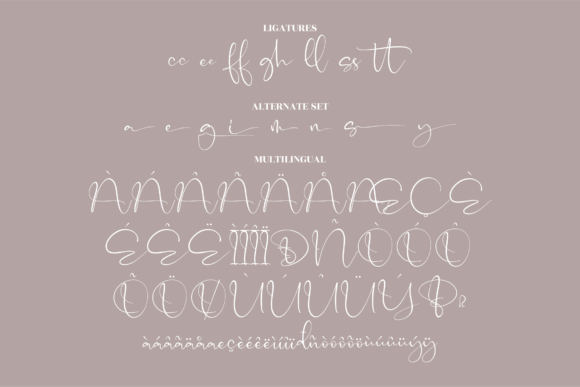 LIGATURES
cc ee ff gh ll ss tt
ALTERNATE SET
a e g i m n s y
MULTILINGUAL
ÀÁÂÃÄÅÆÇÈ
ÉÊËÌÍÎÏÐÑÒÓÔ
ÕÖØÙÚÛÜÝÞ
àáâãäåæçèéêëìíîïðñòóôõöùúûüýÿ